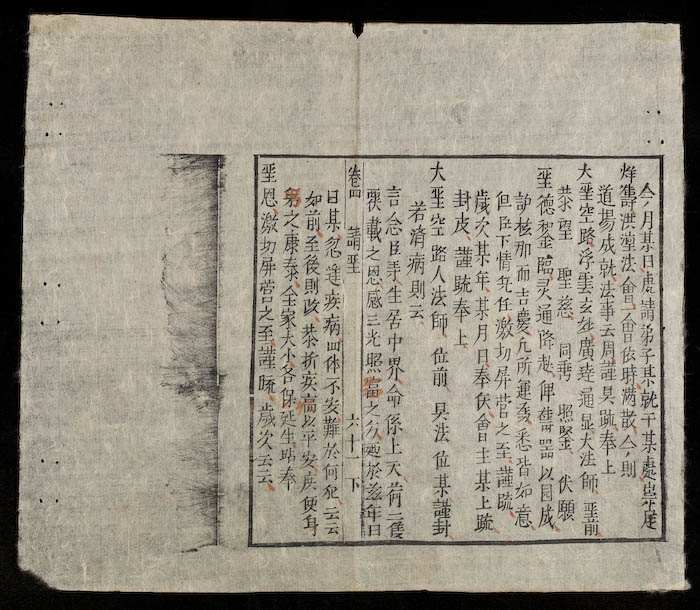 今月某日處請弟子某就于某處崇建
鑄洪法會一會依時满散今則
道塲成就法事云周謹具疏奉上
大聖空路浮雲玄廣達通显大法師 聖前
恭望 聖慈 同垂 照鑒 伏願
聖德臨灵通降赴俾鑄噐以圓成
訪核那而吉慶凡所運为悉皆如意
但臣下情無任激切屏营之至謹疏
歲次某年某月日奉伏會主某上疏
封皮 謹疏奉上
大聖空路大法師 位前 具法位某謹封
若濟病則云
言念臣等生居中界命係上天荷二儀
覆載之恩感三光照臨之力於玆年日
卷四 請聖 六十二 下
日某忽逢疾病四体不安難於何犯云云
如前至後則改恭祈疾以平安庶便身
之康泰全家大小各保延生奉
聖恩激切屏营之至謹疏歲次云云